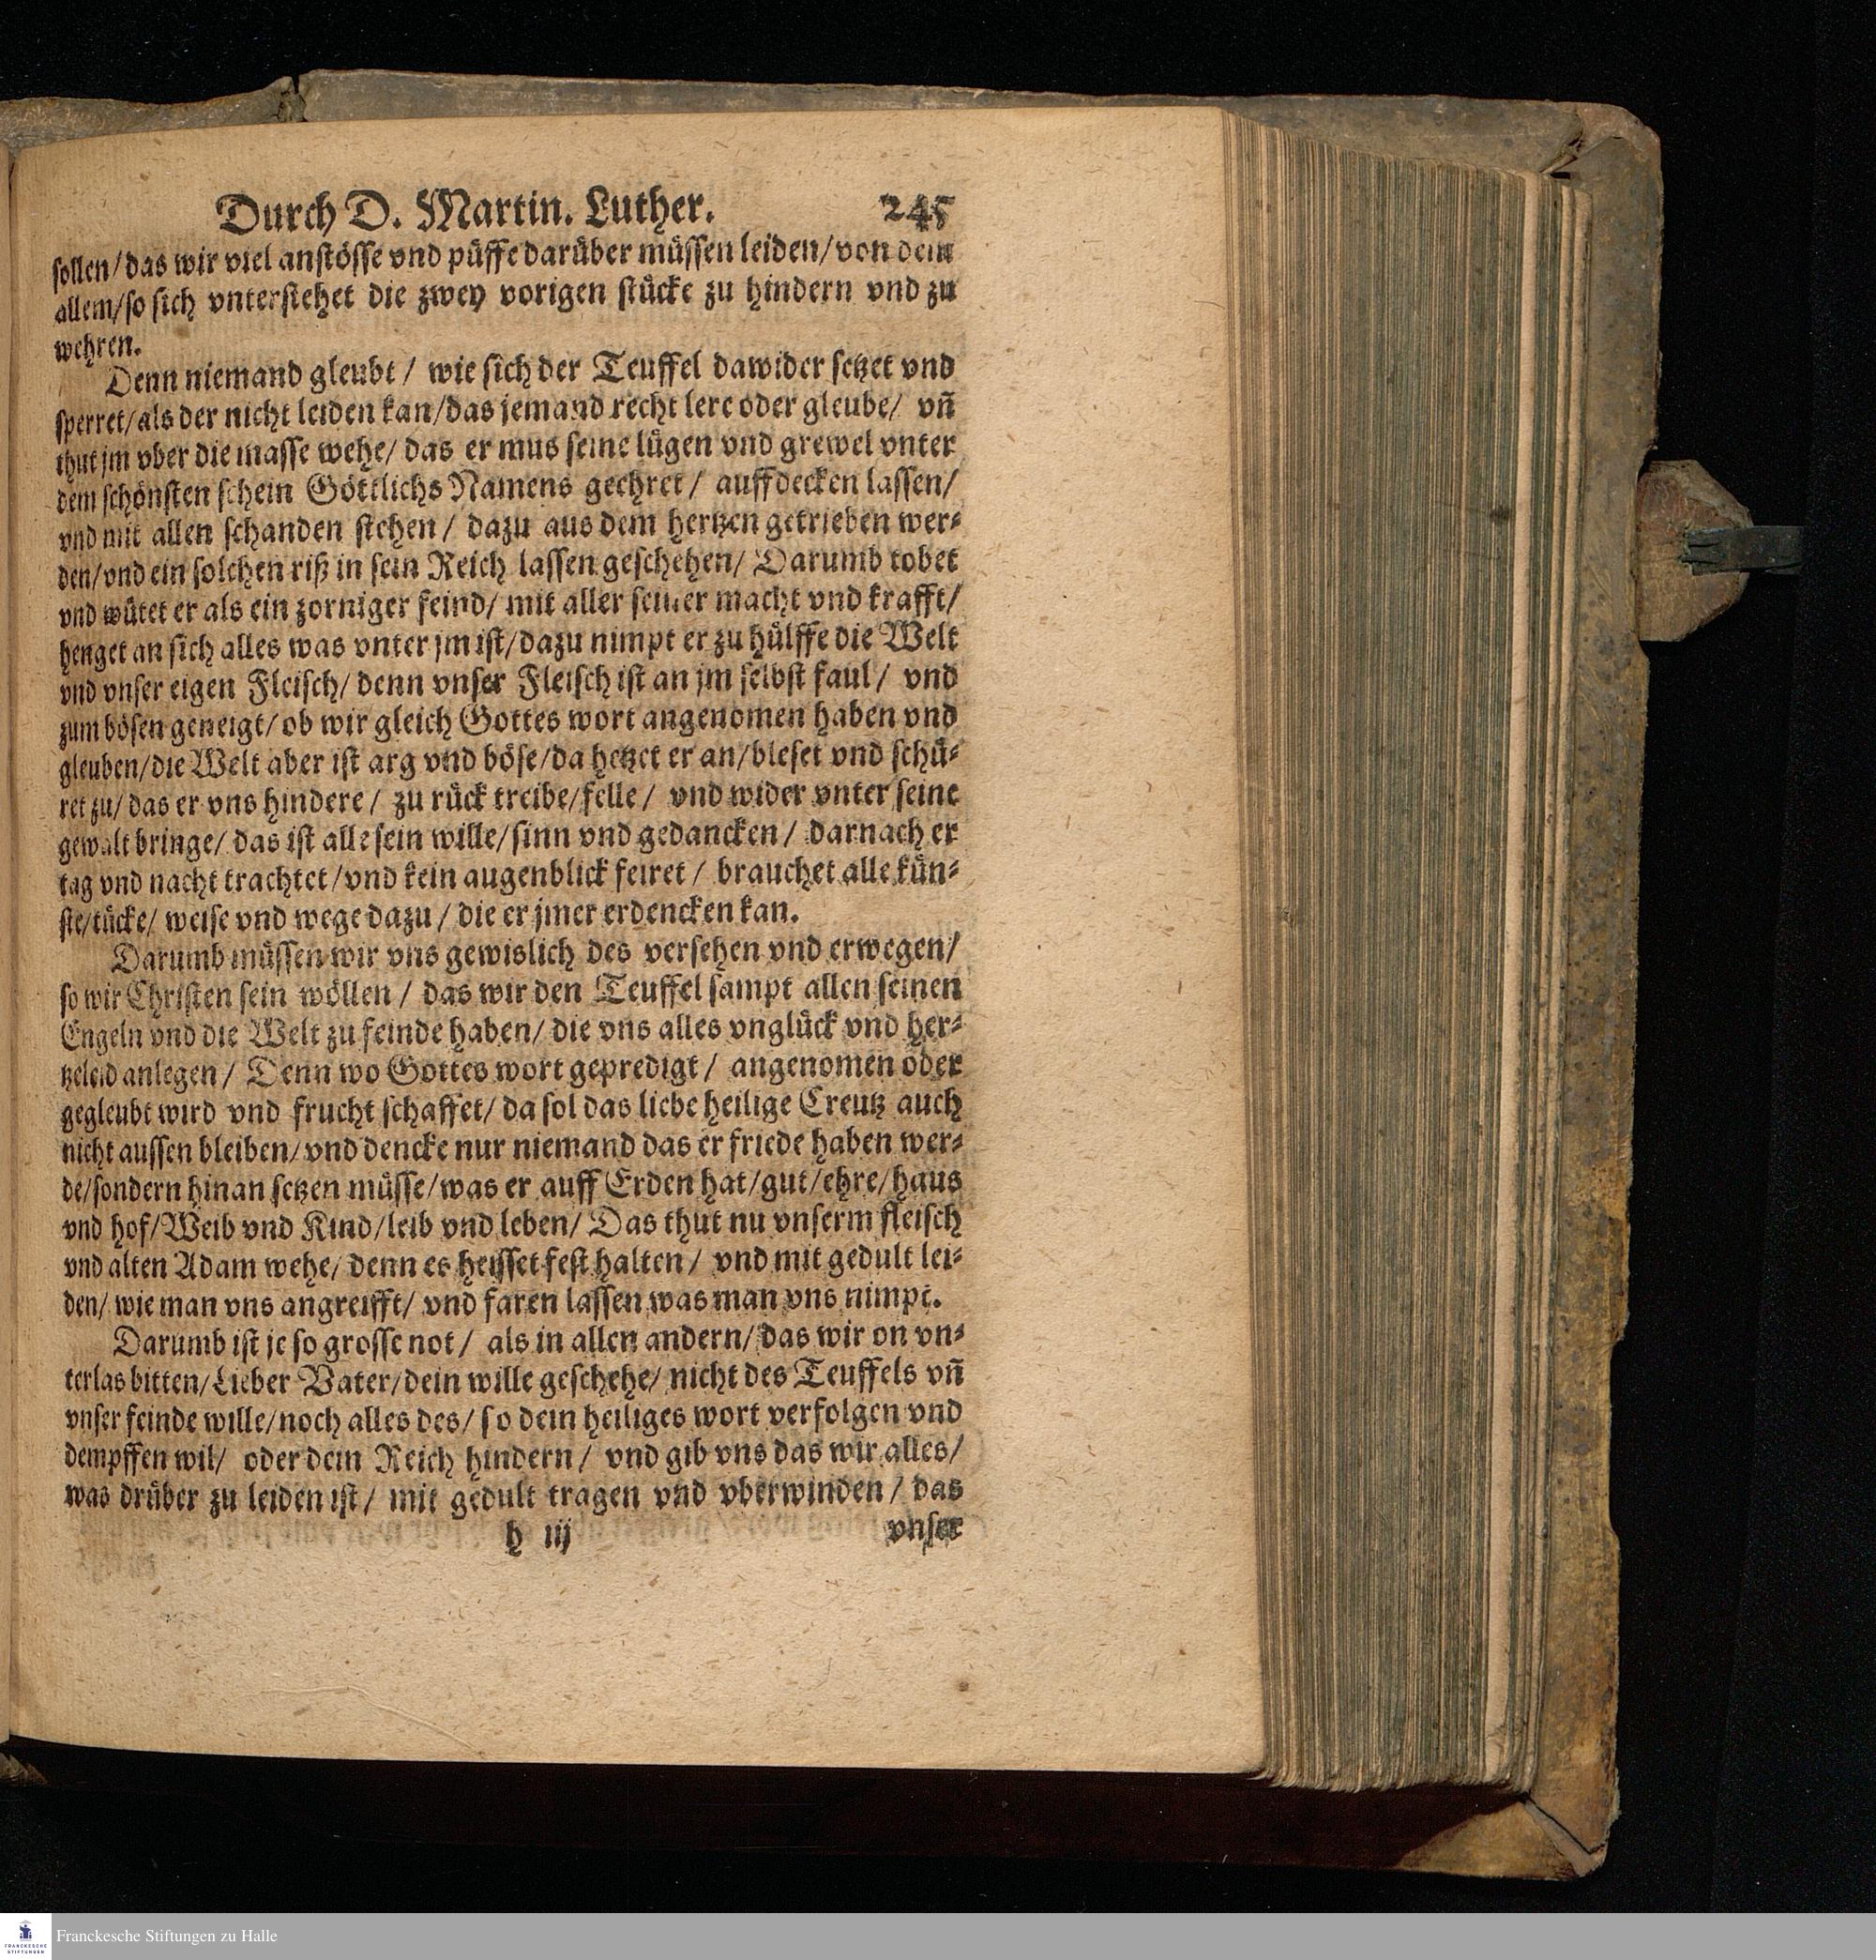 Durch D. Martin. Luther. 245
sollen/das wir viel anstösse vnd püffe darüber müssen leiden/von dem
allem/so sich vnterstehet die zwey vorigen stücke zu hindern vnd zu
wehren.
Denn niemand gleubt/ wie sich der Teuffel dawider setzet vnd
sperret/als der nicht leiden kan/das jemand recht lere oder gleube/ vn̄
thut jm vber die masse wehe/ das er mus seine lügen vnd grewel vnter
dem schönsten schein Göttlichs Namens geehret/ auffdecken lassen/
vnd mit allen schanden stehen/ dazu aus dem hertzen getrieben wer⸗
den/vnd ein solchen riß in sein Reich lassen geschehen/ Darumb tobet
vnd wütet er als ein zorniger feind/ mit aller seiner macht vnd krafft/
henget an sich alles was vnter jm ist/dazu nimpt er zu hülffe die Welt
vnd vnser eigen Fleisch/ denn vnser Fleisch ist an jm selbst faul/ vnd
zum bösen geneigt/ob wir gleich Gottes wort angenomen haben vnd
gleuben/die Welt aber ist arg vnd böse/da hetzet er an/bleset vnd schü⸗
ret zu/ das er vns hindere/ zu rück treibe/felle/ vnd wider vnter seine
gewalt bringe/ das ist alle sein wille/sinn vnd gedancken/ darnach er
tag vnd nacht trachtet/vnd kein augenblick feiret/ brauchet alle kün⸗
ste/tücke/ weise vnd wege dazu/ die er jmer erdencken kan.
Darumb müssen wir vns gewislich des versehen vnd erwegen/
so wir Christen sein wöllen/ das wir den Teuffel sampt allen seinen
Engeln vnd die Welt zu feinde haben/ die vns alles vnglück vnd her⸗
tzeleid anlegen/ Denn wo Gottes wort gepredigt/ angenomen oder
gegleubt wird vnd frucht schaffet/ da sol das liebe heilige Creutz auch
nicht aussen bleiben/vnd dencke nur niemand das er friede haben wer⸗
de/sondern hinan setzen müsse/was er auff Erden hat/gut/ehre/haus
vnd hof/Weib vnd Kind/leib vnd leben/ Das thut nu vnserm fleisch
vnd alten Adam wehe/ denn es heisset fest halten/ vnd mit gedult lei⸗
den/ wie man vns angreifft/ vnd faren lassen was man vns nimpt.
Darumb ist je so grosse not/ als in allen andern/ das wir on vn⸗
terlas bitten/Lieber Vater/dein wille geschehe/ nicht des Teuffels vn̄
vnser feinde wille/noch alles des/ so dein heiliges wort verfolgen vnd
dempffen wil/ oder dein Reich hindern/ vnd gib vns das wir alles/
was drüber zu leiden ist/ mit gedult tragen vnd vberwinden/ das
h iij vnser
Franckesche Stiftungen zu Halle
FRANCKESCHE
STIFTUNGEN